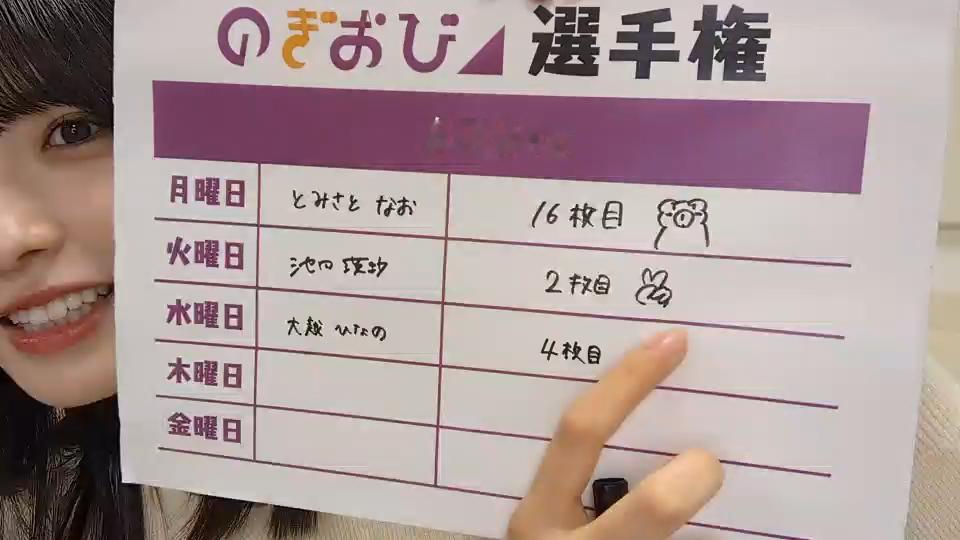 のぎおび 選手権
月曜日 とみさと なお 16枚目
火曜日 池田 瑛紗 2枚目
水曜日 大越 ひなの 4枚目
木曜日
金曜日